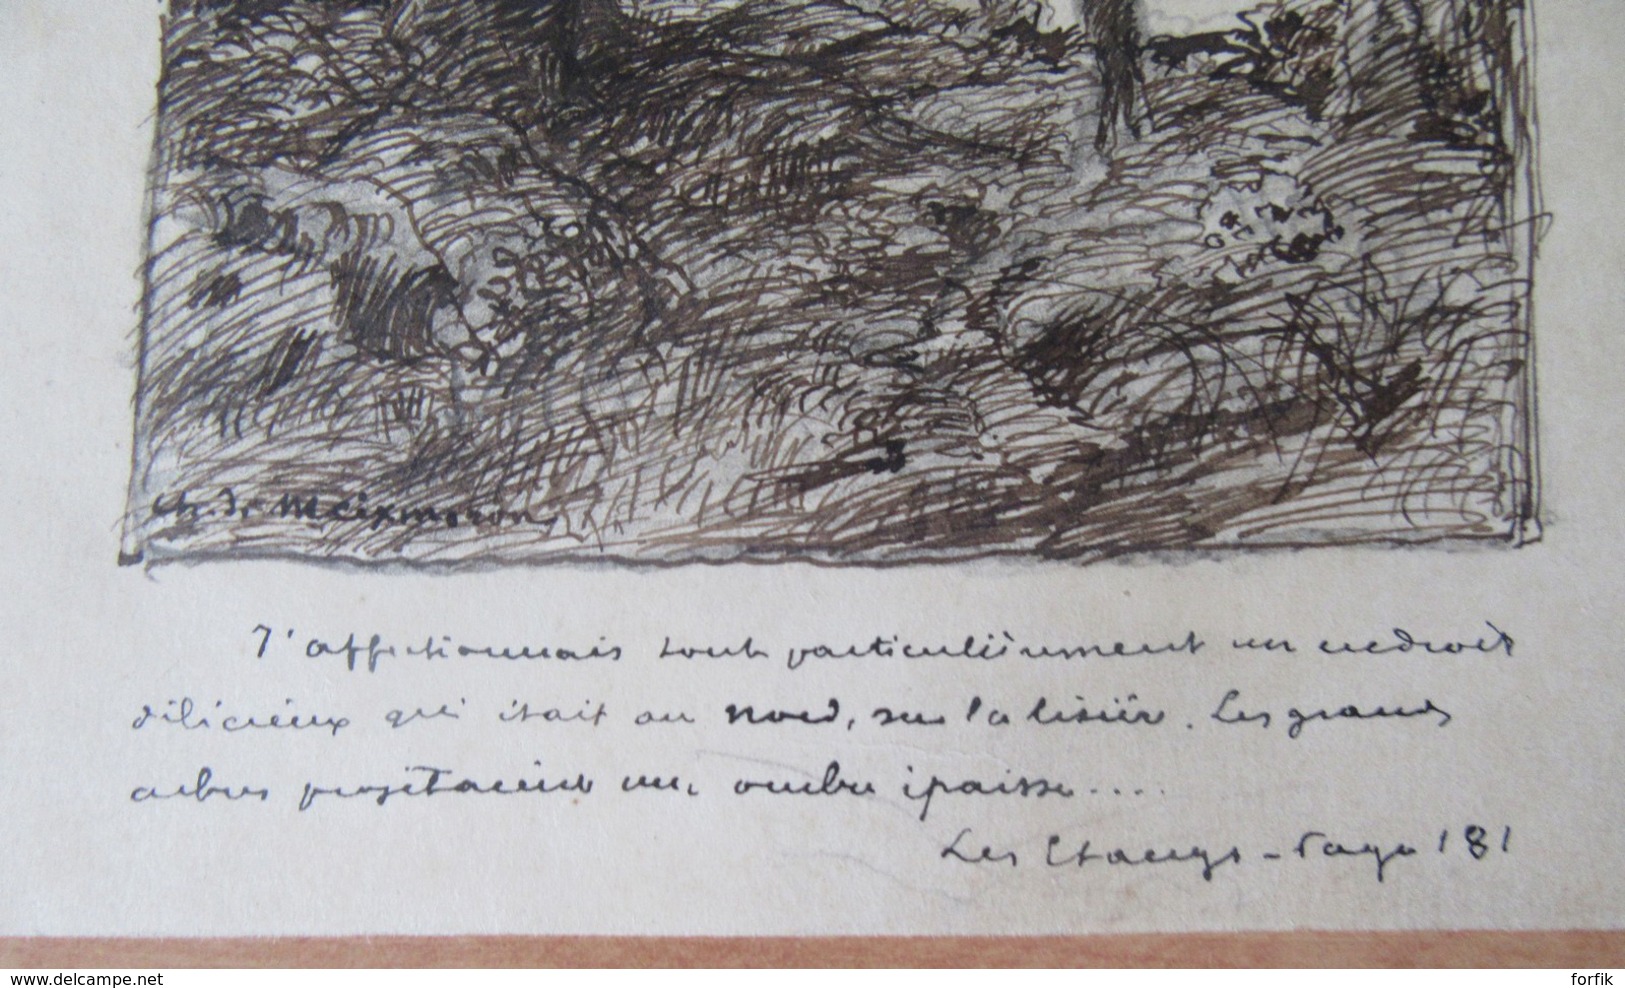 Ch. de Meixmoron
J'affectionnais tout particulièrement un endroit
délicieux qui était au nord, sur la lisière. Les grands
arbres projetaient une ombre épaisse....
Les Etangs - Page 181
www.delcampe.net
forfik